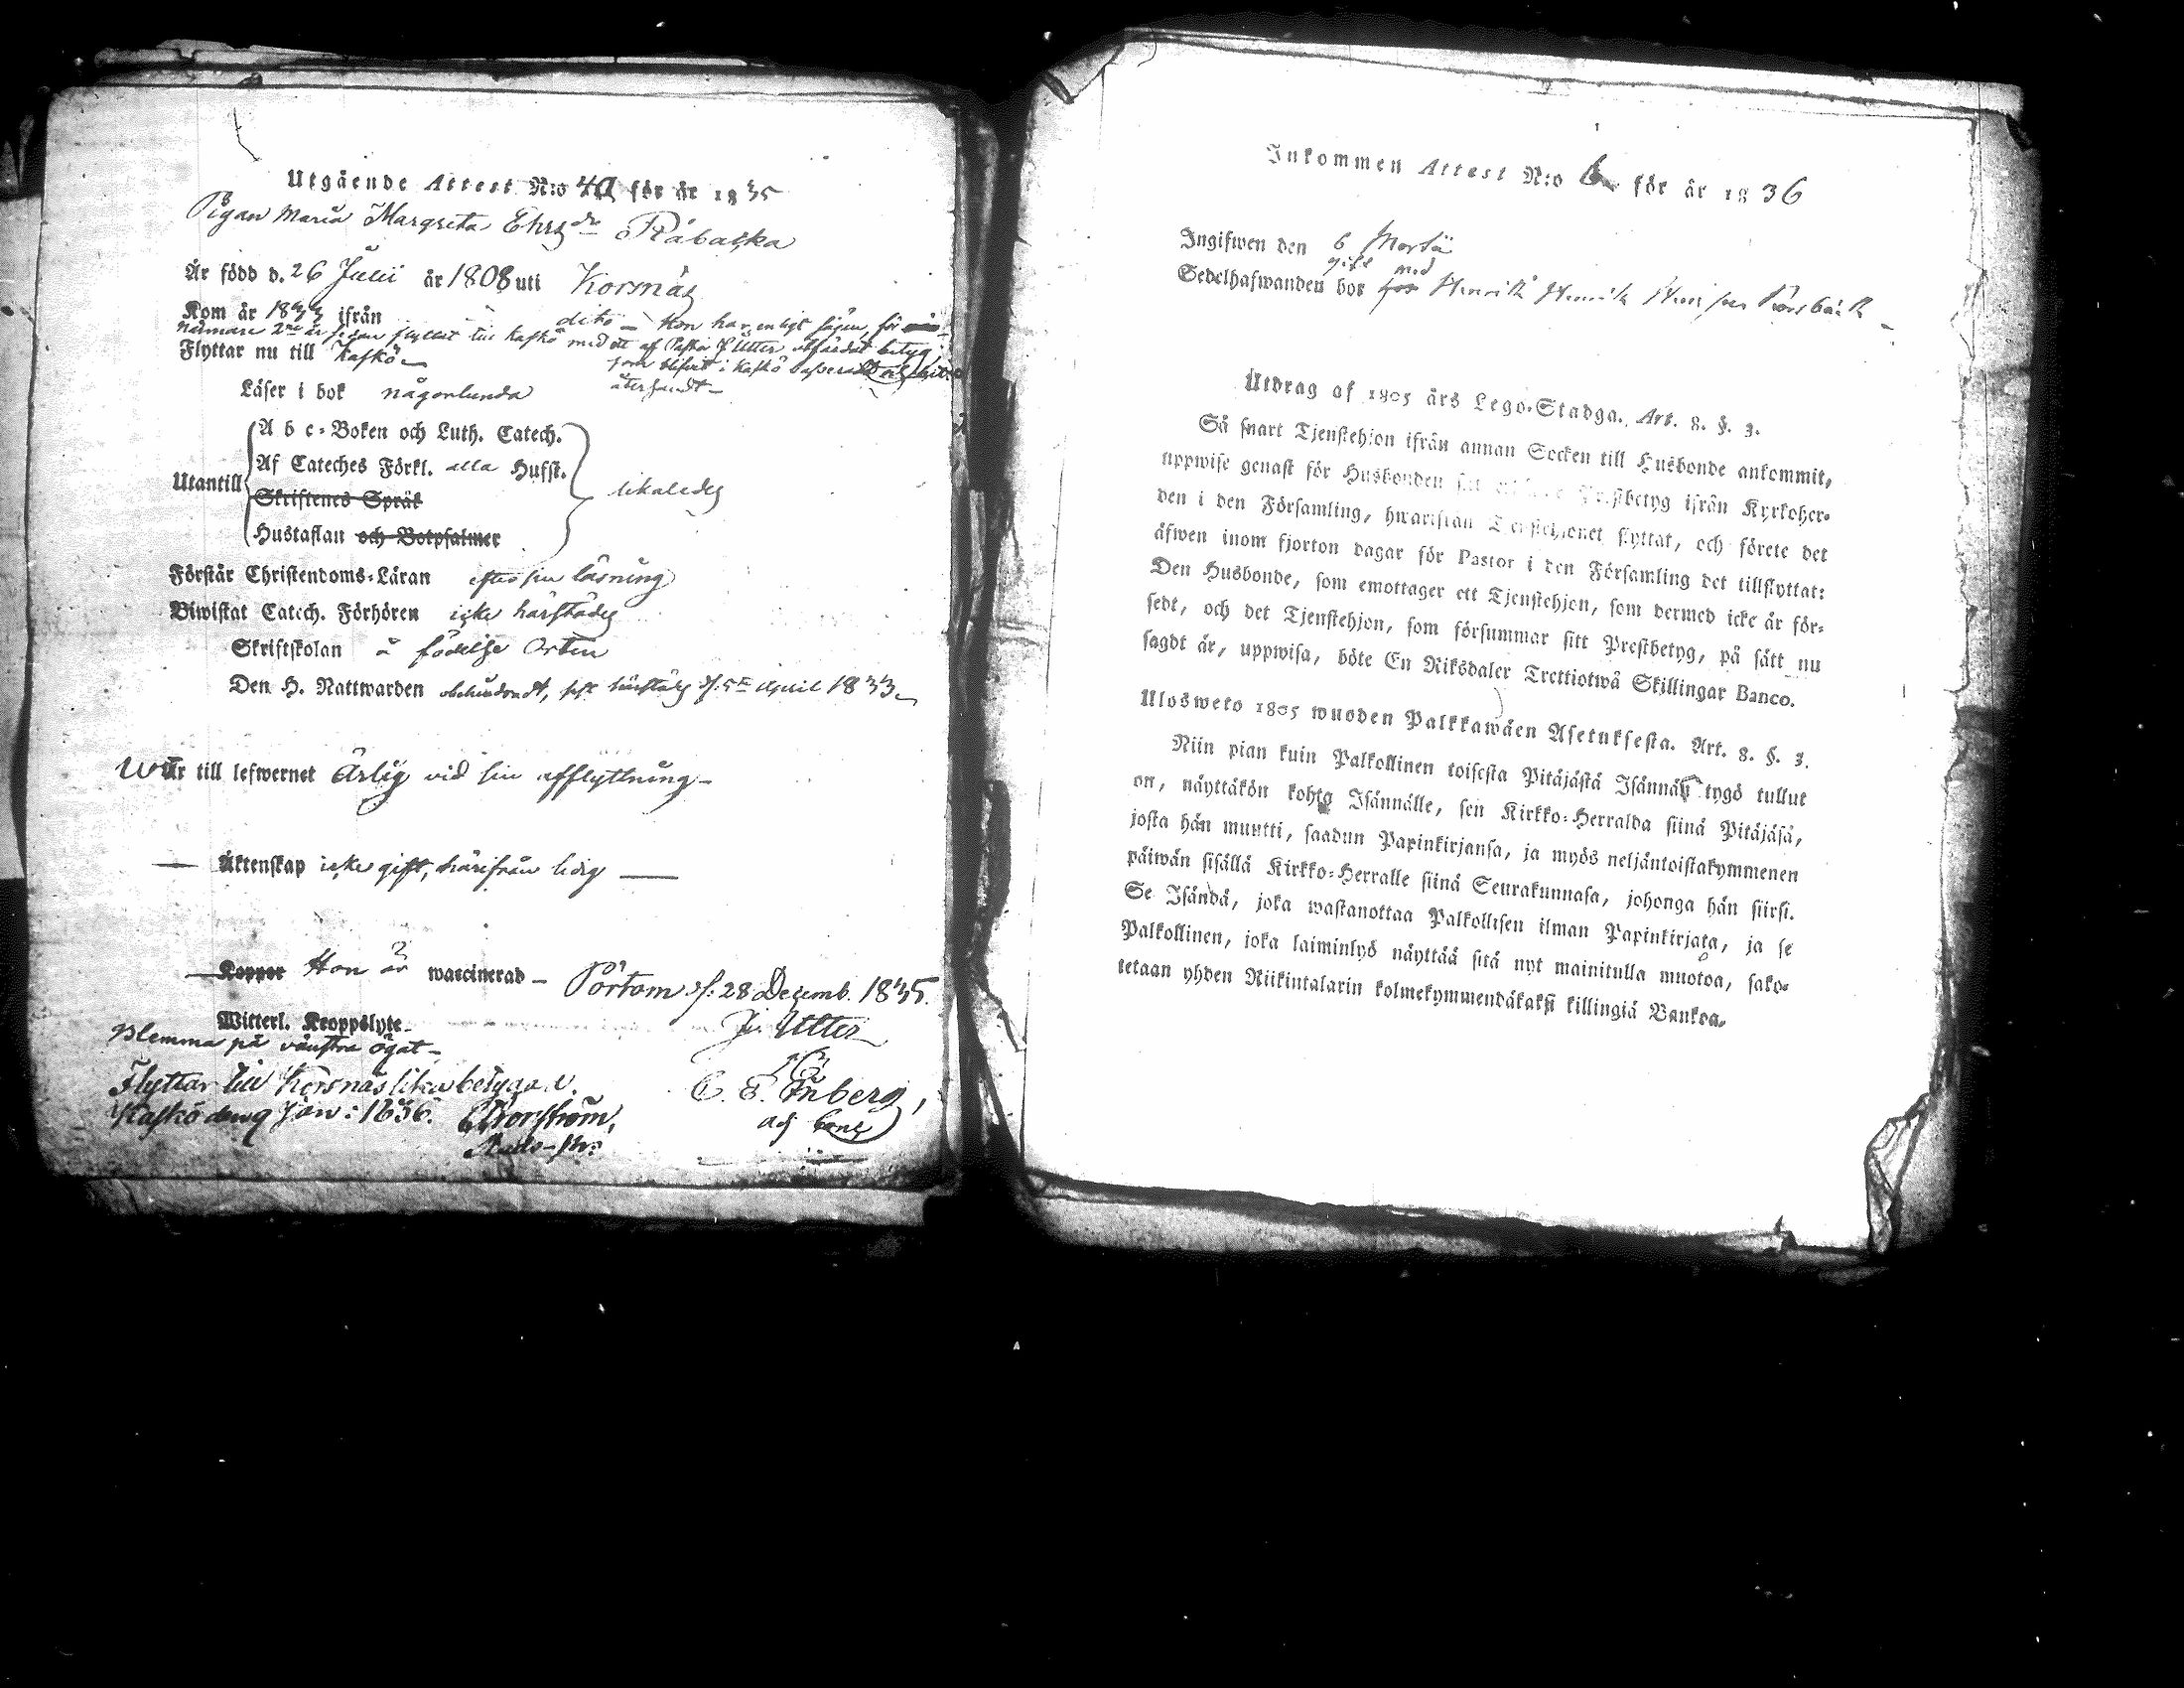 Utgående Attest N:o 40 för år 1835
Pigan Maria Margreta Ehrsdr Råbacka
Är född d. 26 Julii år 1808 uti Korsnäs
Kom år 1833 ifrån dito — Hon har enligt sägen, för
närmare 2ne år sedan flyttat till Kaskö med ett af Pastor J Utter utfärdat betyg
Flyttar nu till Kaskö —
som blifvit i Kaskö
återsändt —
Läser i bok någorlunda
A b c-Boken och Luth. Catech.
Af Cateches Förkl. alla Hufst.
Utantill likaledes
Skriftenes Språk
Hustaflan och Botpsalmer
Förstår Christendoms-Läran efter sin läsning
Biwistat Catech. Förhören icke härstädes
Skriftskolan å födelse Orten
Den H. Nattwarden härstädes d. 5 April 1833
War till lefwernet Ärlig vid sin afflyttning —
— Äktenskap icke gift, härifrån ledig —
Koppor Hon är waccinerad —
Pörtom d. 28 Decemb. 1835.
Witterl. Kroppslyte
J. Utter
Blemma på vänstra ögat —
Flyttar till Korsnäs lika betygad.
C. E. Enberg,
Kaskö den 9 Jan: 1836.
adj
Inkommen Attest N:o 6 för år 1836
Ingifwen den 6 Martii
gift med
Sedelhafwanden bor hos Henrik Henrik
Utdrag af 1805 års Lego-Stadga. Art. 8. §. 3.
Så snart Tjenstehjon ifrån annan Socken till Husbonde ankommit,
uppwise genast för Husbonden sitt Prestbetyg ifrån Kyrkoher-
den i den Församling, hwarifrån Tjenstehjonet flyttat, och förete det
äfwen inom fjorton dagar för Pastor i den Församling det tillflyttat:
Den Husbonde, som emottager ett Tjenstehjon, som dermed icke är för-
sedt, och det Tjenstehjon, som försummar sitt Prestbetyg, på sätt nu
sagdt är, uppwisa, böte En Riksdaler Trettiotwå Skillingar Banco.
Ulosweto 1805 wuoden Palkkawäen Asetuksesta. Art. 8. §. 3.
Niin pian kuin Palkollinen toisesta Pitäjästä Isännän tygö tullut
on, näyttäkön kohta Isännälle, sen Kirkko-Herralda siinä Pitäjäsä,
josta hän muutti, saadun Papinkirjansa, ja myös neljäntoistakymmenen
päiwän sisällä Kirkko-Herralle siinä Seurakunnasa, johonga hän siirsi.
Se Isändä, joka wastanottaa Palkollisen ilman Papinkirjata, ja se
Palkollinen, joka laiminlyö näyttää sitä nyt mainitulla muotoa, sako-
tetaan yhden Riikintalarin kolmekymmendäkaksi killingiä Bankoa.